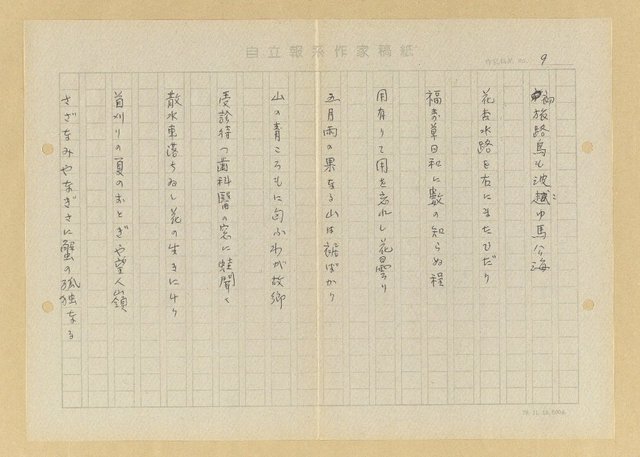 自立報系作家稿紙
9
初旅路鳥も波越ゆ馬公海
花あ水路を右にまたひだり
福寿草日和に数の知らぬ程
用有りて用を忘れし花曇り
五月雨の果なる山は裾ばかり
山の青ころもに匂ふわが故郷
受診待つ歯科醫の窓に蛙聞く
散水車落ちゐし花の生きに
首刈りの夏のおとぎや望人嶺
さざなみやなぎさに蟹の孤独なる